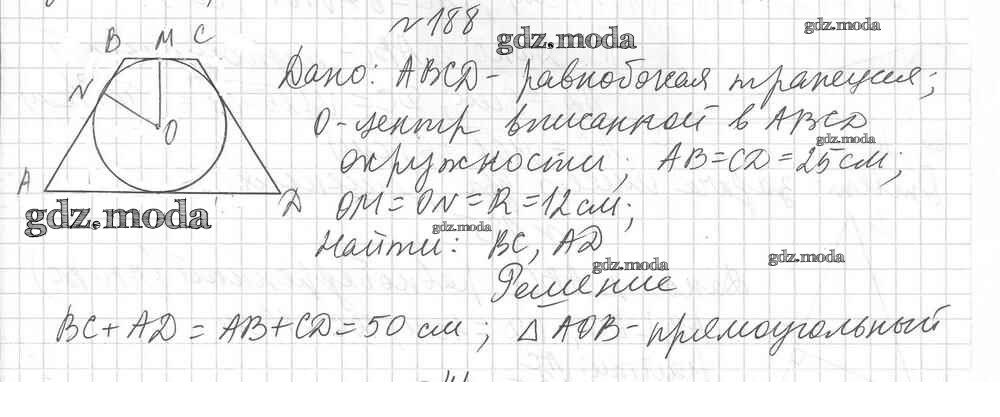 №188
B M C
gdz.moda
gdz.moda
Дано: ABCD - равнобокая трапеция;
N
O
O - центр вписанной в ABCD
gdz.moda
окружности; AB = CD = 25 см;
A
D
gdz.moda
OM = ON = R = 12 см;
gdz.moda
Найти: BC, AD
gdz.moda
gdz.moda
Решение
BC + AD = AB + CD = 50 см; △AOB - прямоугольный